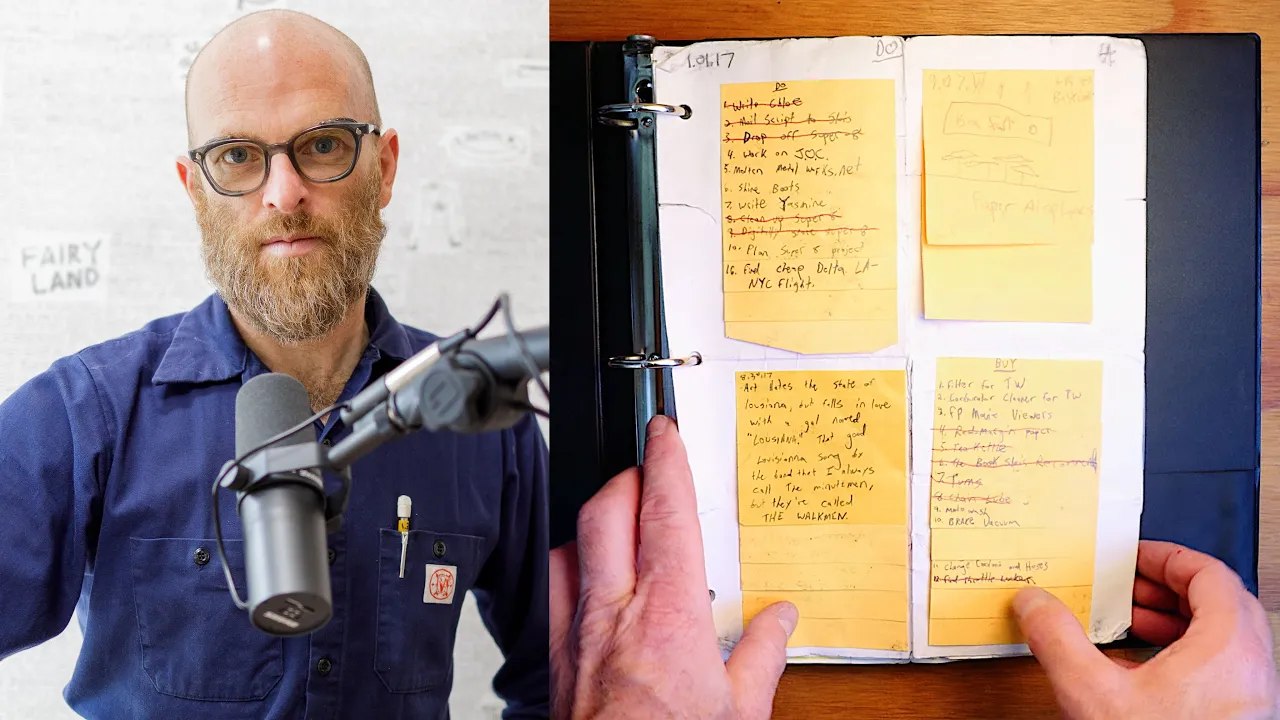 FAIRY
LAND
1.01.17
DO
DO
1. Write Chloe
2. Mail Script to
3. Drop off Super 8
4. Work on JOC.
5. Molten Metal Works.net
6. Shine Boots
7. Write Yasmine
8. Clean up Super 8
9. Digitally super 8
10. Plan Super 8 project
16. Find cheap Delta LA-
NYC flight.
Paper Airplanes
Art Hates the state of
lousianna, but falls in love
with a gal named
"LOUSIANNA." That good
Lousianna song by
the band that I always
call The minutemen,
but they're called
THE WALKMEN.
BUY
1. Filter for TW
2. Carburator Cleaner for TW
3. FP Movie Viewers
4. Red Margin paper
5. Tea Kettle
6. The Book
7. Tums
8. Lube
9. 
10. BRAKE Vacuum
11. Change Coolant and Hoses
12. Find throttle